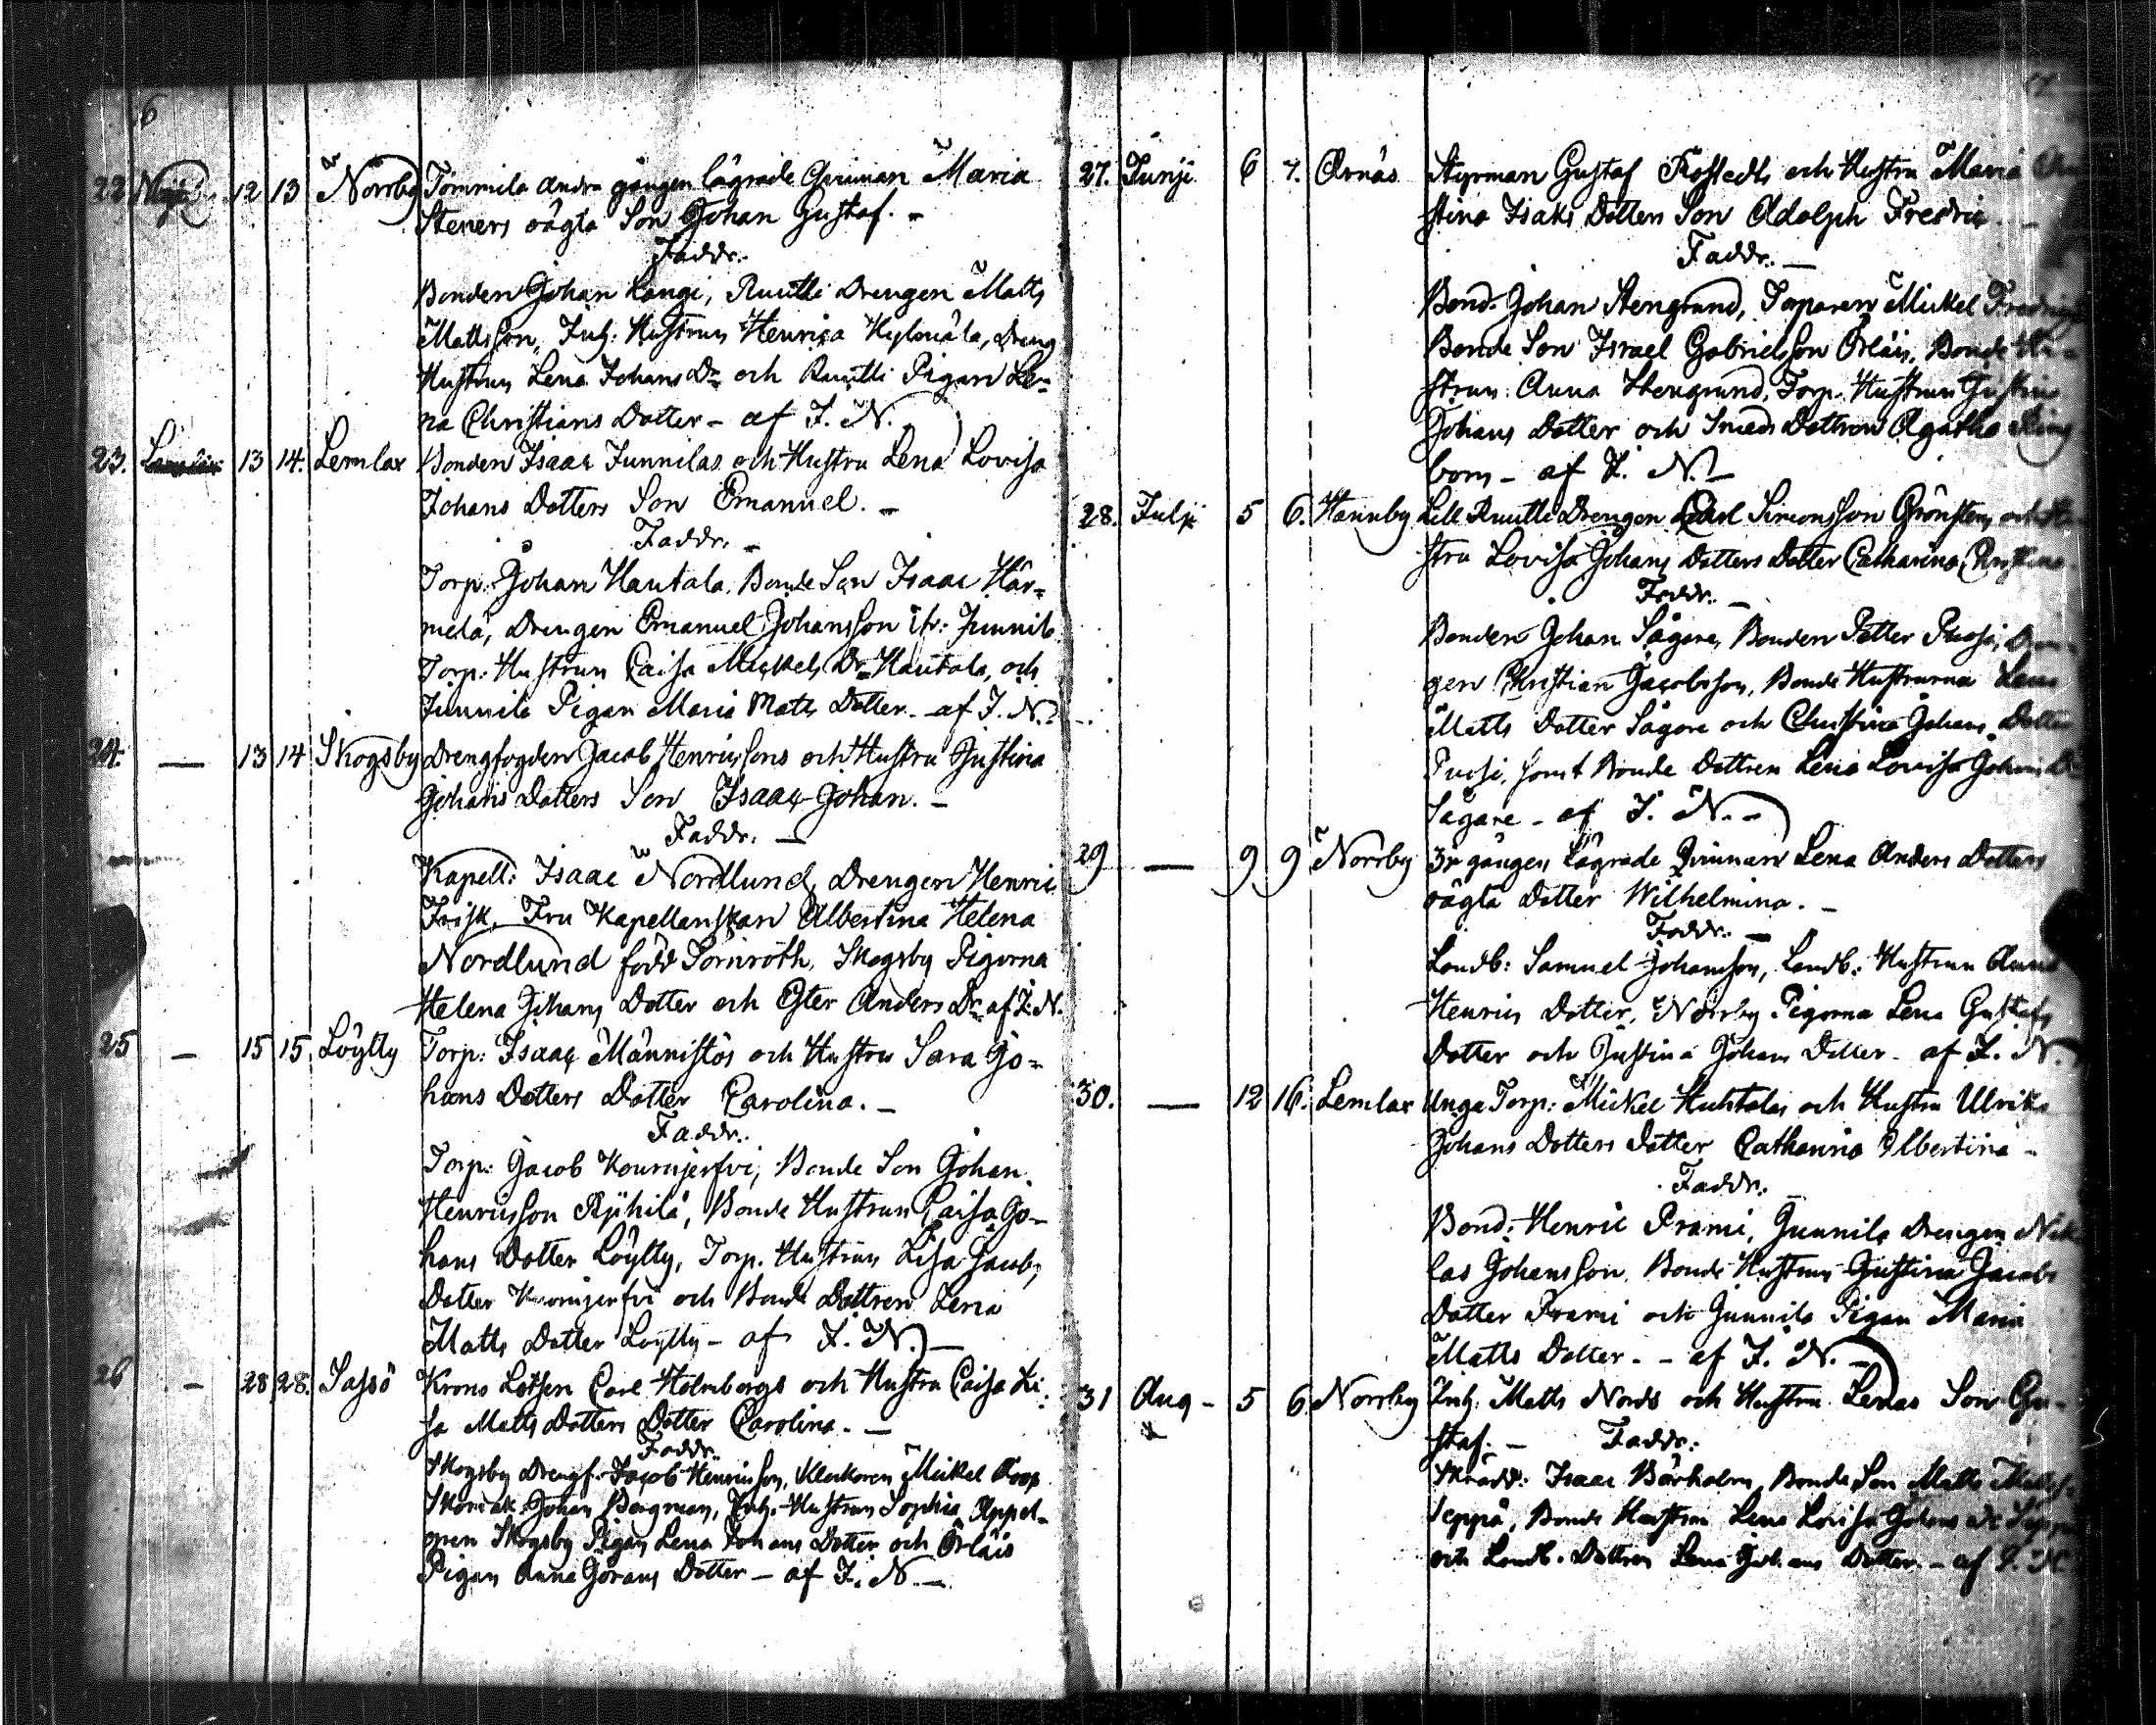 16
22 Maji 12 13 Norrby Tommila andra gången lägrade Qvinnan Maria
Steners oägta Son Johan Gustaf. -
Faddr.
Bonden Johan Langi, Ruutti Drengen Matts
Mattsson, Inh: Hustrun Henrica Kylmälä, Dreng
Hustrun Lena Johans Dr och Ruutti Pigan Le=
na Christians Dotter - af I. N.
23. 13 14. Lemlax Bonden Isaac Junnilas och Hustru Lena Lovisa
Johans Dotters Son Emanuel. -
Faddr. -
Torp: Johan Hautala, Bonde Son Isaac Här=
melä, Drengen Emanuel Johansson ifr: Junnila
Torp: Hustrun Caisa Mickels Dr Hautala, och
Junnila Pigan Maria Matts Dotter - af I. N.
24. — 13 14 Skogsby Drengfogden Jacob Henricssons och Hustru Justina
Johans Dotters Son Isaac Johan. -
Faddr. -
Kapell: Isaac Nordlund, Drengen Henric
Frisk, Fru Kapellanskan Albertina Helena
Nordlund född Törnroth, Skogsby Pigorna
Helena Johans Dotter och Ester Anders Dr af I. N.
25 — 15 15. Löytty Torp: Isaac Männistös och Hustru Sara Jo=
hans Dotters Dotter Carolina. -
Faddr.
Torp: Jacob Kournjerfvi, Bonde Son Johan
Henricsson Rijhilä, Bonde Hustrun Caisa Jo-
hans Dotter Löytty, Torp. Hustrun Lisa Jacobs
Dotter Kournjerfvi och Bonde Dottren Lena
Matts Dotter Löytty - af I. N. -
26 — 28 28. Sassö Krono Lotsen Carl Holmbergs och Hustru Caisa Li
sa Matts Dotters Dotter Carolina. -
Faddr.
Skogsby Drengf: Jacob Henricsson, Klockaren Mickel Roos
Skomak: Johan Bergman, Inh: Hustrun Sophia Appel-
gren Skogsby Pigan Lena Johans Dotter och Örläis
Pigan Anna Görans Dotter - af I. N. -
27. Junji 6 7. Ornäs Styrman Gustaf Rostedts och Hustru Maria
stina Isaks Dotters Son Adolph Fredric. -
Faddr. -
Bond. Johan Stengrund, Torparen Mickel
Bonde Son Israel Gabrielsson Örläis, Bonde Hu-
strun: Anna Stengrund, Torp. Hustrun Justina
Johans Dotter och Smeds Dottren Agatha Ring
bom - af I. N. -
28. Julji 5 6. Hannby Lill Ruutti Drengen Carl Simonsson Grönstens och Hu
stru Lovisa Johans Dotters Dotter Catharina Christina.
Faddr. -
Bonden Johan Sågare, Bonden Petter Puosi, Dren-
gen Christian Jacobsson, Bonde Hustrurna Lena
Matts Dotter Sågare och Christina Johans Dotter
Puosi, samt Bonde Dottren Lena Lovisa Johans Dr
Sågare - af I. N. -
29 — 9 9 Norrby 3je gången Lägrade Qvinnan Lena Anders Dotters
oägta Dotter Wilhelmina. -
Faddr. -
Landb: Samuel Johansson, Landb: Hustrun Anna
Henrics Dotter, Norrby Pigorna Lena Gustafs
Dotter och Justina Johans Dotter - af I. N.
30. — 12 16. Lemlax Unga Torp: Mickel Huhtalas och Hustru Ulrika
Johans Dotters Dotter Catharina Albertina -
Faddr.
Bond: Henric Prami, Junnila Drengen Nik
las Johansson, Bonde Hustrun Justina Jacobs
Dotter Prami och Junnila Pigan Maria
Matts Dotter. - af I. N. -
31 Aug - 5 6 Norrby Inh: Matts Nords och Hustru Lenas Son Gu-
staf. - Faddr:
Skrädd: Isaac Bärholm, Bonde Son Matts Matts
Seppä, Bonde Hustrun Lena Lovisa Johans Dr Seppä
och Landb. Dottren Lena Johans Dotter - af I. N